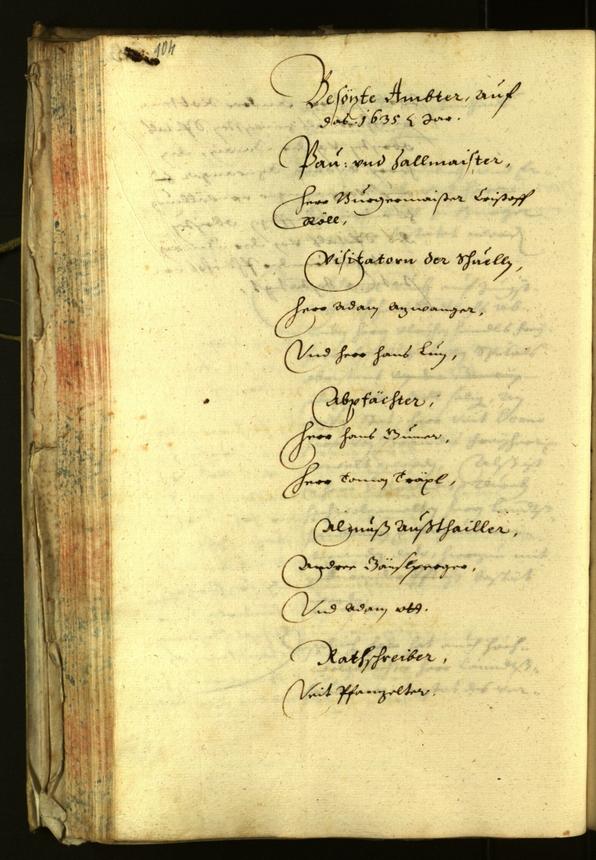 104
Besözte Ämbter, auf
das 1635 Jar.
Pau: vnd Zallmaister,
Herr Burgermaister Cristoff
Köll,
Visitatorn der Schuelln,
Herr Adam Anwanger,
Vnd Herr Hans Lun,
Abpfächter,
Herr Hans
Herr Troyer
Almuß Außthailler,
Andree
Vnd Adam Ott.
Rathschreiber,
Veit Pfanzelter.